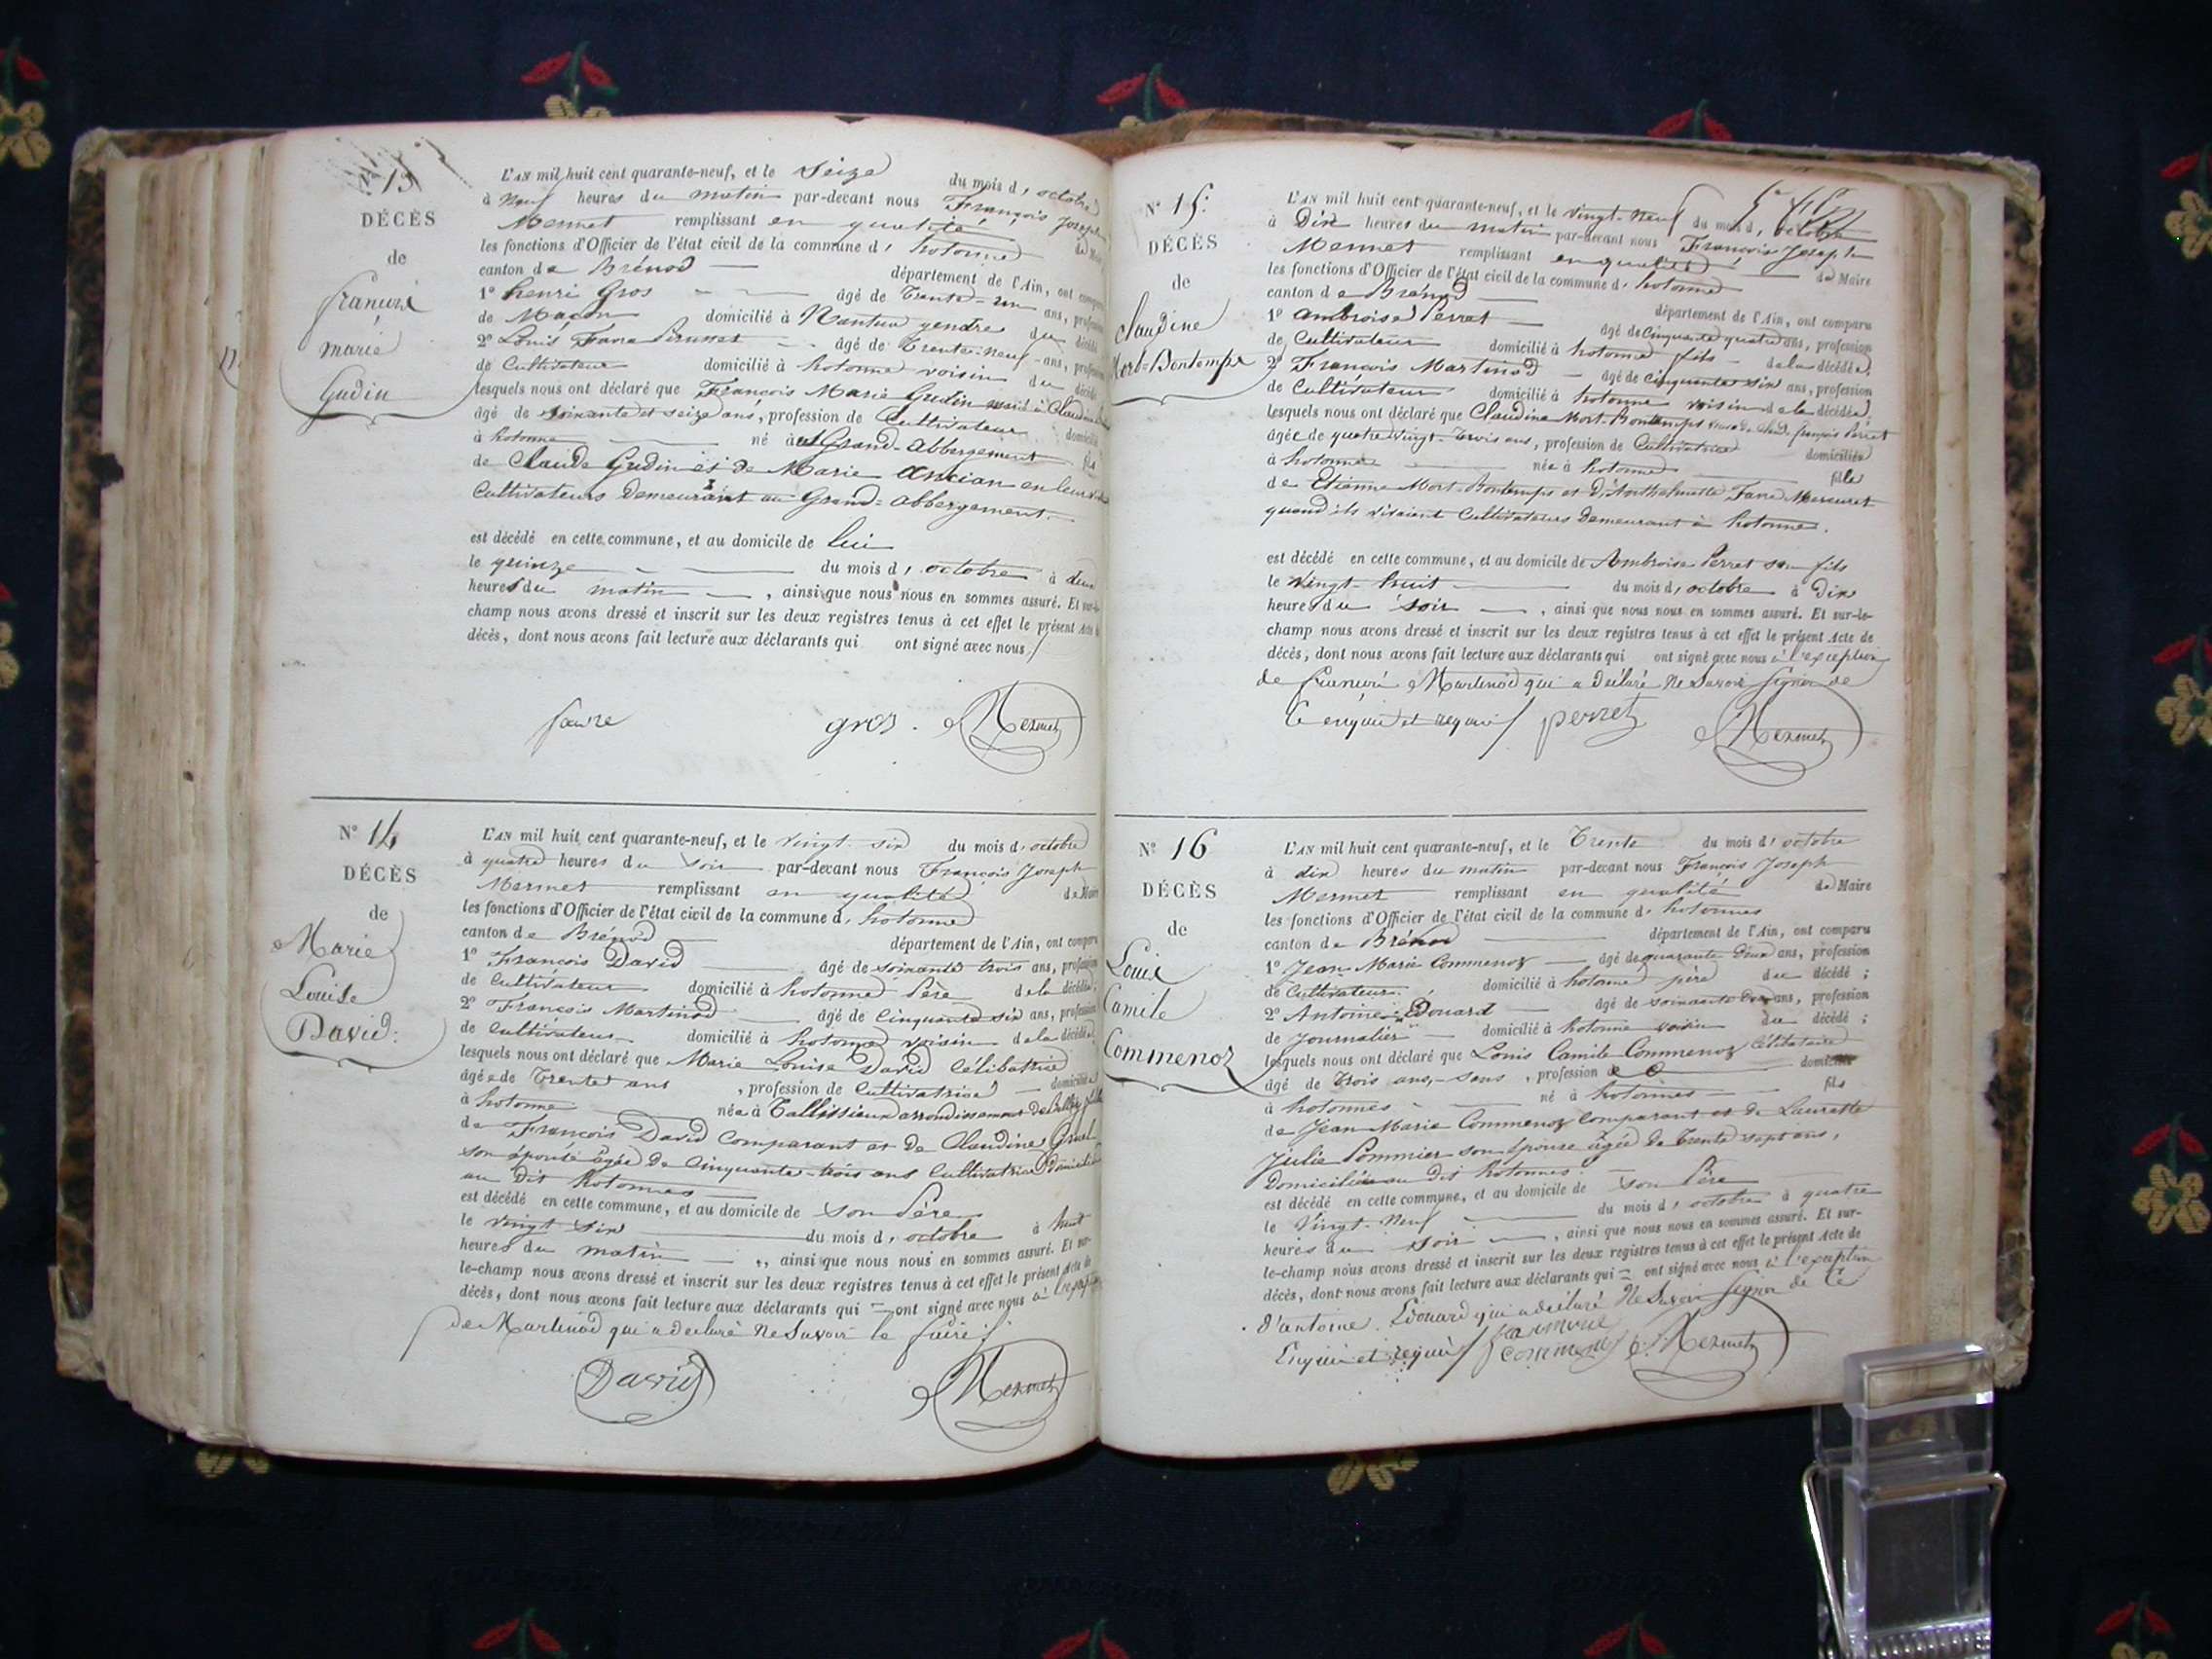 N° 13
DÉCÈS
de
françois
marie
Gudin
L'AN mil huit cent quarante-neuf, et le Seize du mois d'octobre
à neuf heures du matin par-devant nous François Joseph
Mermet remplissant en qualité de Maire
les fonctions d'Officier de l'état civil de la commune d'hotonne
canton de Brénod département de l'Ain, ont comparu
1° henri Gros âgé de Trente-un ans, profession
de Maçon domicilié à Nantua gendre du décédé
2° Louis âgé de Trente-neuf ans, profession
de Cultivateur domicilié à hotonne voisin du décédé
lesquels nous ont déclaré que François Marie Gudin mari à
âgé de soixante et seize ans, profession de Cultivateur domicilié
à hotonne né au Grand-Abbergement fils
de Claude Gudin et de Marie Ancian en leur
Cultivateurs Demeurant au Grand-abbergement.
est décédé en cette commune, et au domicile de lui
le quinze du mois d'octobre à deux
heures du matin, ainsi que nous nous en sommes assuré. Et sur-le-
champ nous avons dressé et inscrit sur les deux registres tenus à cet effet le présent Acte de
décès, dont nous avons fait lecture aux déclarants qui ont signé avec nous
favre gros. Mermet
N° 14
DÉCÈS
de
Marie
Louise
David.
L'AN mil huit cent quarante-neuf, et le vingt-six du mois d'octobre
à quatre heures du soir par-devant nous François Joseph
Mermet remplissant en qualité de Maire
les fonctions d'Officier de l'état civil de la commune d'hotonne
canton de Brénod département de l'Ain, ont comparu
1° François David âgé de soixante trois ans, profession
de Cultivateur domicilié à hotonne Père de la décédée;
2° François Martinod âgé de Cinquante six ans, profession
de Cultivateur domicilié à hotonne voisin de la décédée;
lesquels nous ont déclaré que Marie Louise David Célibatrice
âgée de Trente ans, profession de Cultivatrice domiciliée
à hotonne née à Tallissieux arrondissement de Belley fille
de François David Comparant et de Claudine
son épouse âgée de Cinquante-trois ans Cultivatrice Domiciliée
au dit hotonnes
est décédé en cette commune, et au domicile de son Père
le vingt six du mois d'octobre à huit
heures du matin, ainsi que nous nous en sommes assuré. Et sur-
le-champ nous avons dressé et inscrit sur les deux registres tenus à cet effet le présent Acte de
décès, dont nous avons fait lecture aux déclarants qui ont signé avec nous à l'exception
de Martinod qui a déclaré ne Savoir le faire
David Mermet
N° 15.
DÉCÈS
de
Claudine
Mort-Bontemps
L'AN mil huit cent quarante-neuf, et le vingt-neuf du mois d'octobre
à Dix heures du matin par-devant nous François Joseph
Mermet remplissant en qualité de Maire
les fonctions d'Officier de l'état civil de la commune d'hotonne
canton de Brénod département de l'Ain, ont comparu
1° Ambroise Perret âgé de Cinquante quatre ans, profession
de Cultivateur domicilié à hotonne fils de la décédée;
2° François Martinod âgé de Cinquante six ans, profession
de Cultivateur domicilié à hotonne voisin de la décédée;
lesquels nous ont déclaré que Claudine Mort-Bontemps veuve de Claude françois Perret
âgée de quatre vingt-trois ans, profession de Cultivatrice domiciliée
à hotonne née à hotonne fille
de Etienne Mort-Bontemps et d'Anthelmette
quand ils vivaient Cultivateurs Demeurant à hotonne.
est décédé en cette commune, et au domicile de Ambroise Perret son fils
le vingt-huit du mois d'octobre à Dix
heures du soir, ainsi que nous nous en sommes assuré. Et sur-le-
champ nous avons dressé et inscrit sur les deux registres tenus à cet effet le présent Acte de
décès, dont nous avons fait lecture aux déclarants qui ont signé avec nous à l'exception
de françois Martinod qui a déclaré Ne Savoir Signer de
Ce enquis et requis perret Mermet
N° 16
DÉCÈS
de
Louis
Camile
Commenoz
L'AN mil huit cent quarante-neuf, et le Trente du mois d'octobre
à dix heures du matin par-devant nous François Joseph
Mermet remplissant en qualité de Maire
les fonctions d'Officier de l'état civil de la commune d'hotonnes
canton de Brénod département de l'Ain, ont comparu
1° Jean-Marie Commenoz âgé de quarante Deux ans, profession
de Cultivateur domicilié à hotonne père du décédé;
2° Antoine âgé de soixante ans, profession
de Journalier domicilié à hotonne voisin du décédé;
lesquels nous ont déclaré que Louis Camile Commenoz Célibataire
âgé de Trois ans, sans, profession de domicilié
à hotonnes né à hotonnes fils
de Jean-Marie Commenoz Comparant et de Laurette
Julie Pommier son épouse âgée de Trente sept ans,
Domiciliée au Dit hotonnes.
est décédé en cette commune, et au domicile de son Père
le Vingt-Neuf du mois d'octobre à quatre
heures du soir, ainsi que nous nous en sommes assuré. Et sur-
le-champ nous avons dressé et inscrit sur les deux registres tenus à cet effet le présent Acte de
décès, dont nous avons fait lecture aux déclarants qui ont signé avec nous à l'exception
d'antoine qui a déclaré Ne Savoir Signer de Ce
Enquis et requis Mermet